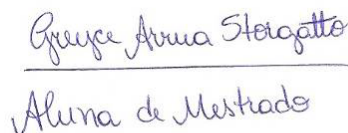 Greyce Arrua Storgatto
Aluna de Mestrado